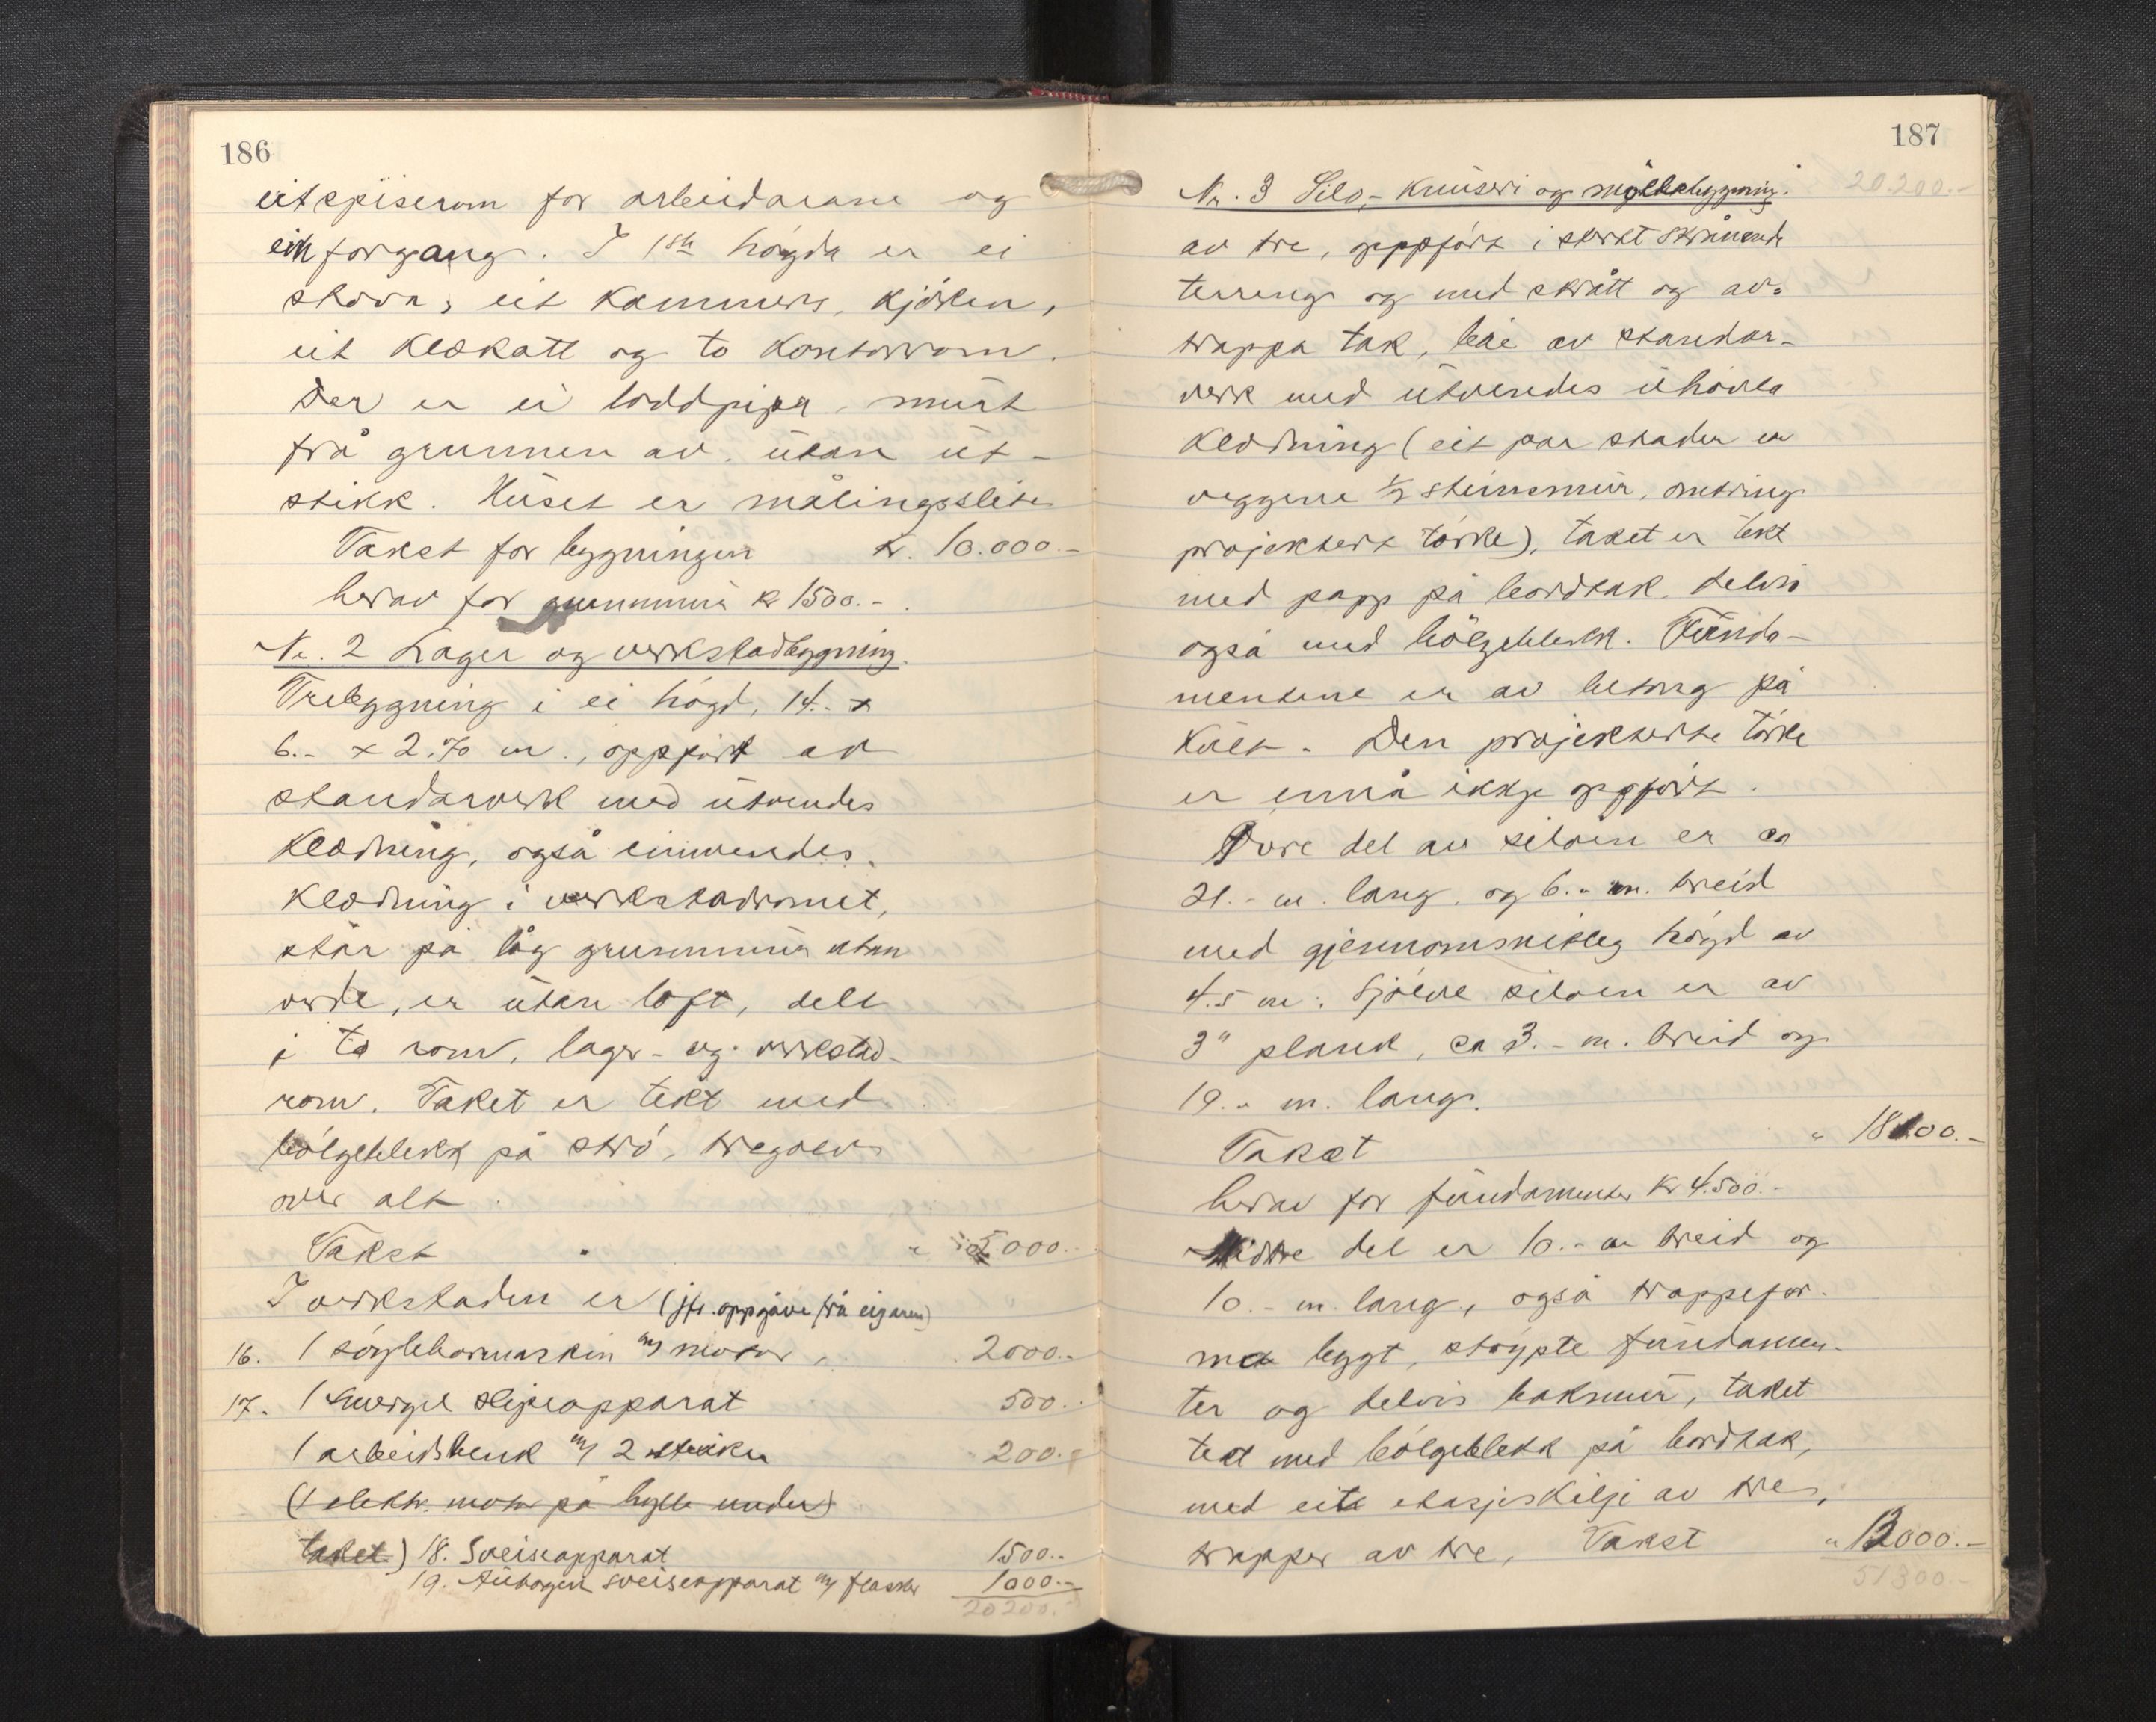 186
eit spiserom for arbeidarane og
ein forgang. I 1ste högda er ei
stova, eit kammers, kjöken,
eit klokatt og to kontorrom.
Der er ei loddpipa, murt
frå grunnen av, utan ut-
stikk. Huset er målingsslite
Takst for bygningen kr. 10.000.-
herav for grunnmur kr 1500.-
Nr. 2 Lager og verkstadbygning.
Trebygning i ei högd, 14.- x
6.- x 2.70 m., oppfört av
standarverk med utvendes
klædning, også innvendes
klædning i verkstadromet,
står på låg grunnmur utan
verde, er utan loft, delt
i to rom, lager- og verkstad-
rom. Taket er tekt med
bölgeblekk på strö, tregolv
over alt.
Takst " 5.000.-
I verkstaden er (jfr. oppgåve frå eigaren)
16. 1 söyleboremaskin m/ motor, 2000.-
17. 1 Smergel slipeapparat 500.-
1 arbeidsbenk m/ 2 stikker 200.-
(1 elektr. motor på hylle under
taket) 18. Sveiseapparat 1500.-
19. Autogen sveiseapparat m/ flasker 1000.-
20 200.-
187
Nr. 3 Silo,- knuseri og möllebygning. 20.200.-
av tre, oppfört i sterkt skrånende
terreng og med skrått og av-
trappa tak, båe av standar-
verk med utvendes uhövla
klædning (eit par stader er
veggene 1/2 steinsmur, omkring
projektert törke), taket er tekt
med papp på bordtak, delvis
også med bölgeblekk. Funda-
mentene er av betong på
kult. Den projekterte törke
er ennå ikkje oppfört.
Övre del av siloen er ca
21.- m. lang, og 6.- m. breid
med gjennomsnitleg högd av
4.5 m. Sjölve siloen er av
3" plank, ca 3.- m. breid og
19.- m. lang.
Takst " 18100.-
herav for fundamenter kr 4.500.-
Midtre del er 10.- m breid og
10.- m. lang, også trappefor-
ma bygt, stöypte fundamen-
ter og delvis bakmur, taket
tekt med bölgeblekk på bordtak,
med eit etasjeskilje av tre,
trapper av tre, Takst " 13000.-
51300.-